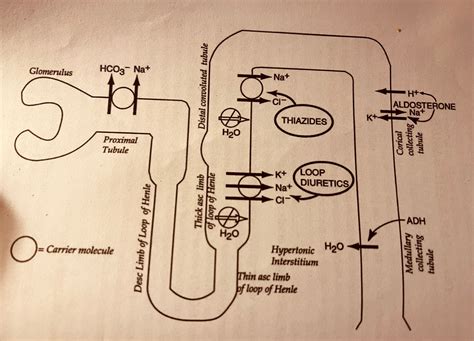 Glomerulus
HCO3⁻ Na⁺
Proximal
Tubule
Distal convoluted tubule
Na⁺
Cl⁻
THIAZIDES
H₂O
H⁺
ALDOSTERONE
Na⁺
K⁺
Corical
collecting
tubule
K⁺
Na⁺
Cl⁻
LOOP
DIURETICS
Thick asc limb
of loop of Henle
H₂O
Desc Limb of Loop of Henle
= Carrier molecule
Hypertonic
Interstitium
H₂O
ADH
Medullary
collecting
tubule
Thin asc limb
of loop of Henle